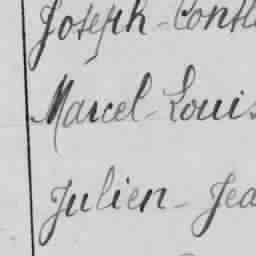 Joseph-Const
Marcel-Louis
Julien-Jea